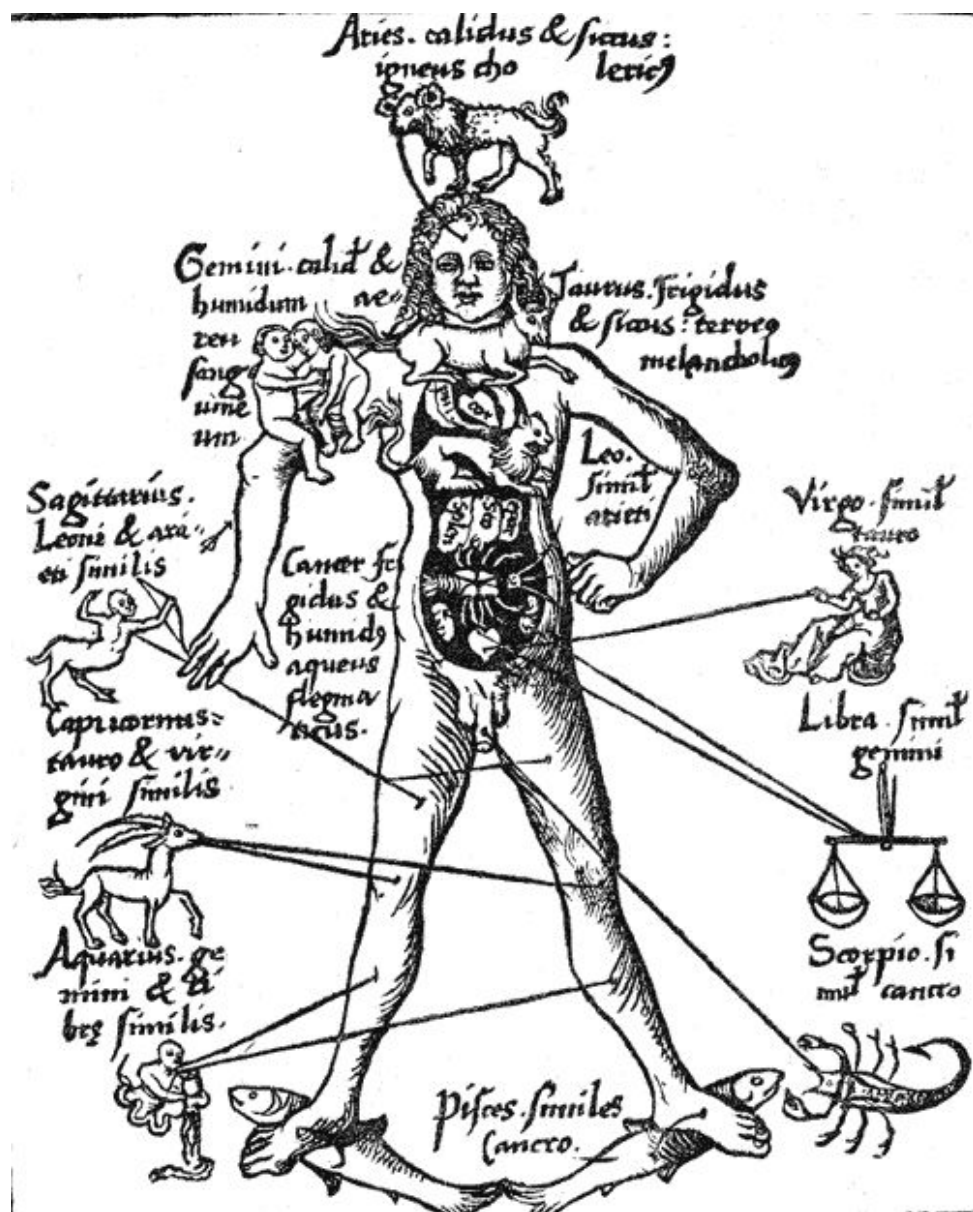 Aries. calidus & siccus:
igneus cho lericꝯ
Gemini. calid' &
humidum ae-
reu
sang
uine
um.
Taurus. frigidus
& siccus: terreꝯ
melancholicꝯ
cor
Leo.
simil'
arieti
Sagittarius.
Leoni & ari-
eti similis
Virgo. simil'
tauro
Cancer fri
gidus &
humidꝯ
aqueus
flegma
ticus.
Capricornus:
tauro & vir-
gini similis
Libra. simil'
gemini
Aquarius. ge
mini & li
brę similis.
Scorpio. si
mil' cancro
Pisces. similes
Cancro.